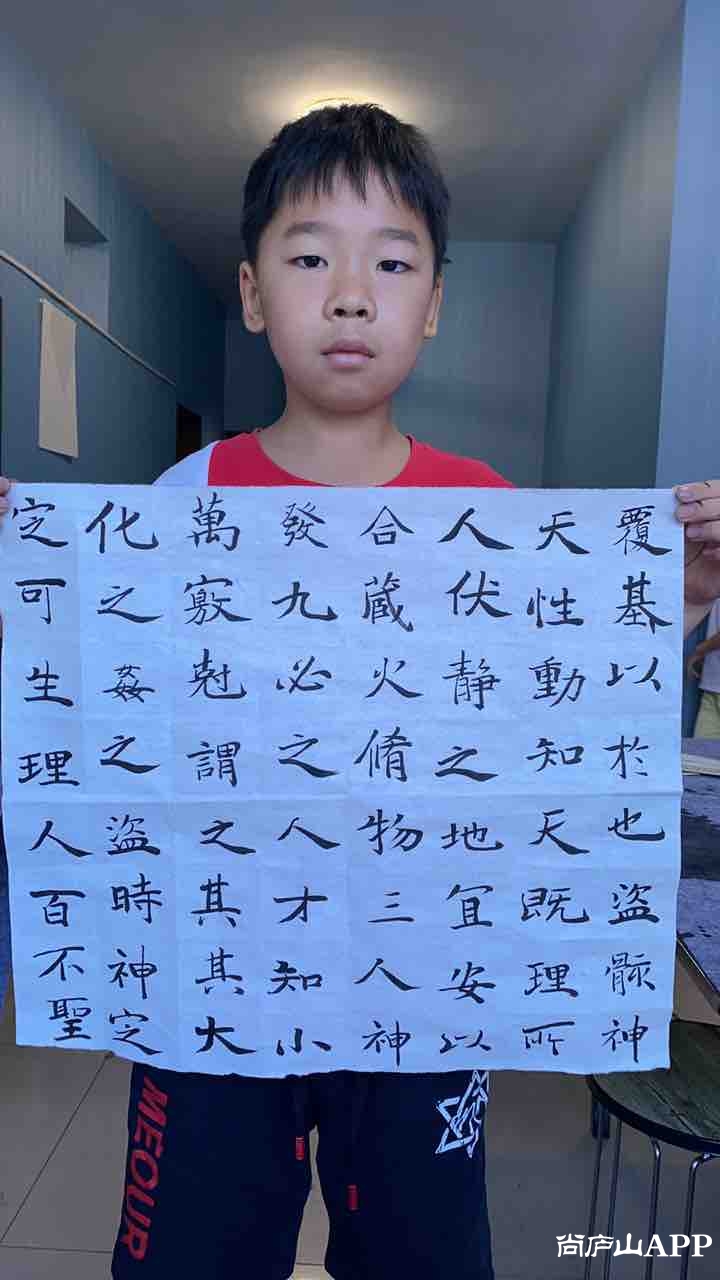 覆基以於也盜骸神
天性動知天既理所
人伏静之地宜安以
合蔵火脩物三人神
發九必之人才知小
萬竅尅謂之其其大
化之姦之盜時神定
定可生理人百不聖
MEOUR
尚庐山APP